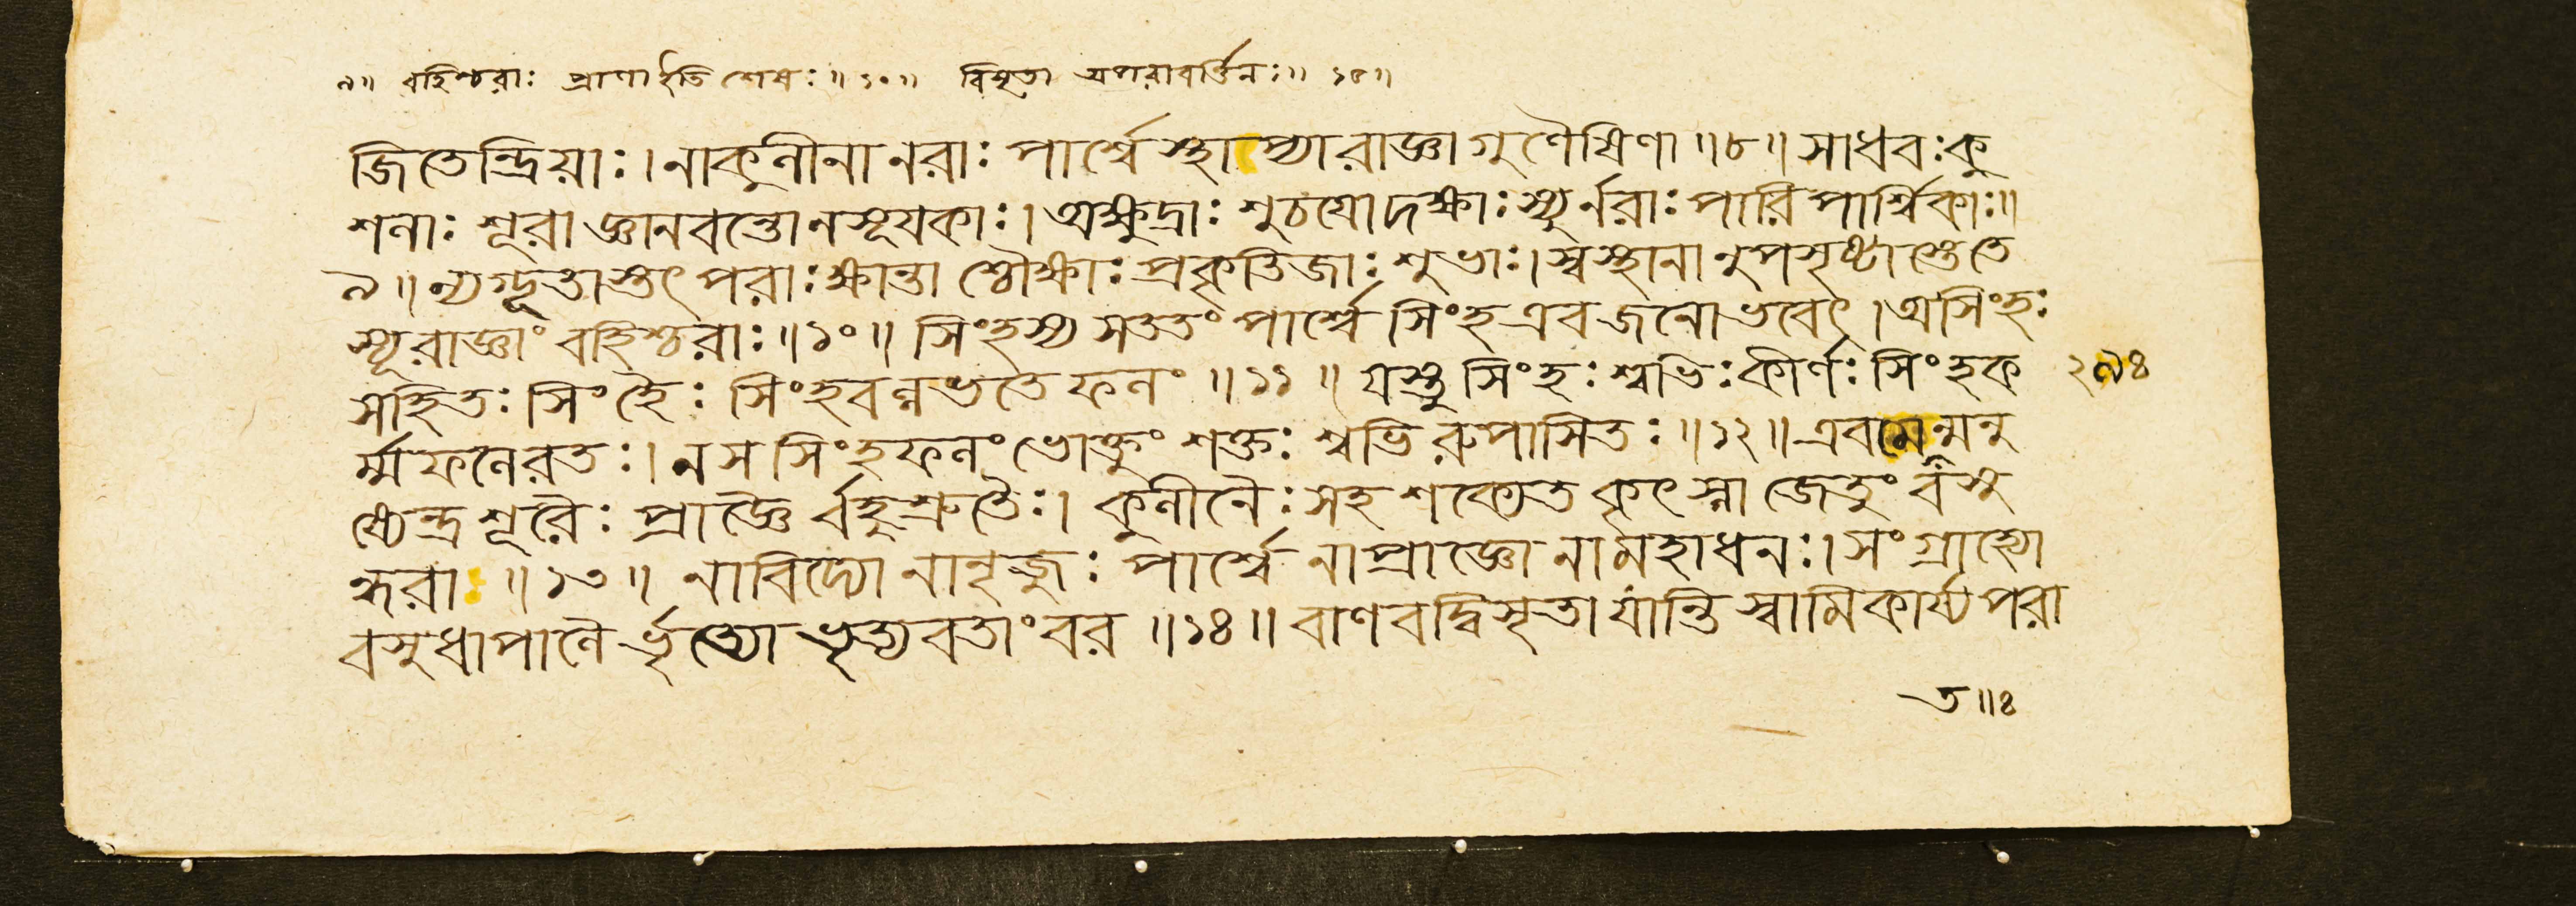 ৯॥ বহিশ্চরাঃ প্রাণাইতি শেষঃ॥১০॥ বিসৃতা অপরাবর্ত্তিনঃ॥ ১৫॥
জিতেন্দ্রিয়াঃ।নাকুলীনানরাঃ পার্শ্বে স্থাপ্যারাজ্ঞাগুণৈষিণা॥৮॥সাধবঃকু
শলাঃ শূরাজ্ঞানবন্তোনসূযকাঃ।অক্ষুদ্রাঃ শুচযোদক্ষাঃস্যুর্নরাঃপারিপার্শ্বিকাঃ॥
৯॥ন্যগ্ভূতাস্তৎপরাঃক্ষান্তাশ্চৌক্ষাঃপ্রকৃতিজাঃশুভাঃ।স্বস্থানানুপসৃষ্টাস্তেতে
স্যূরাজ্ঞাং বহিশ্চরাঃ॥১০॥ সিংহস্য সততং পার্শ্বে সিংহএবজনোভবেৎ।অসিংহঃ
সহিতঃ সিংহৈঃ সিংহবল্লভতে ফলং॥১১॥ যস্তুসিংহঃশ্বভিঃকীর্ণঃসিংহক ২৯৪
র্ম্মফলেরতঃ।নস সিংহফলংভোক্তুং শক্তঃ শ্বভিরুপাসিতঃ॥১২॥এবমেন্মনু
ষ্যেন্দ্রশূরৈঃ প্রাজ্ঞৈর্বহুশ্রুতৈঃ। কুলীনৈঃসহশক্যেতকৃৎস্নাজেতুংবসু
ন্ধরাঃ॥১৩॥ নাবিদ্যোনানৃজুঃ পার্শ্বেনাপ্রাজ্ঞোনামহাধনঃ।সংগ্রাহ্যো
বসুধাপালৈর্ভৃত্যোভৃত্যবতাংবর॥১৪॥বাণবদ্বিসৃতাযান্তিস্বামিকার্য্যপরা
ত॥৪